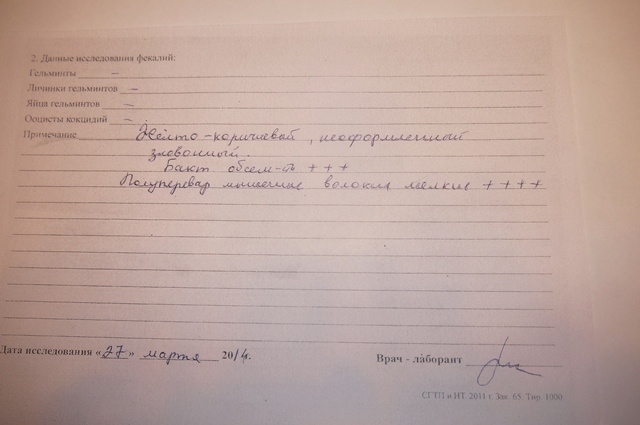 2. Данные исследования фекалий:
Гельминты —
Личинки гельминтов —
Яйца гельминтов —
Ооцисты кокцидий —
Примечание Жёлто-коричневый, неоформленный
зловонный
Бакт обсем-ть +++
Полуперевар мышечные волокна мелкие ++++
Дата исследования «27» марта 2014г.
Врач - лаборант
СГТП и ИТ. 2011 г. Зак. 65. Тир. 1000